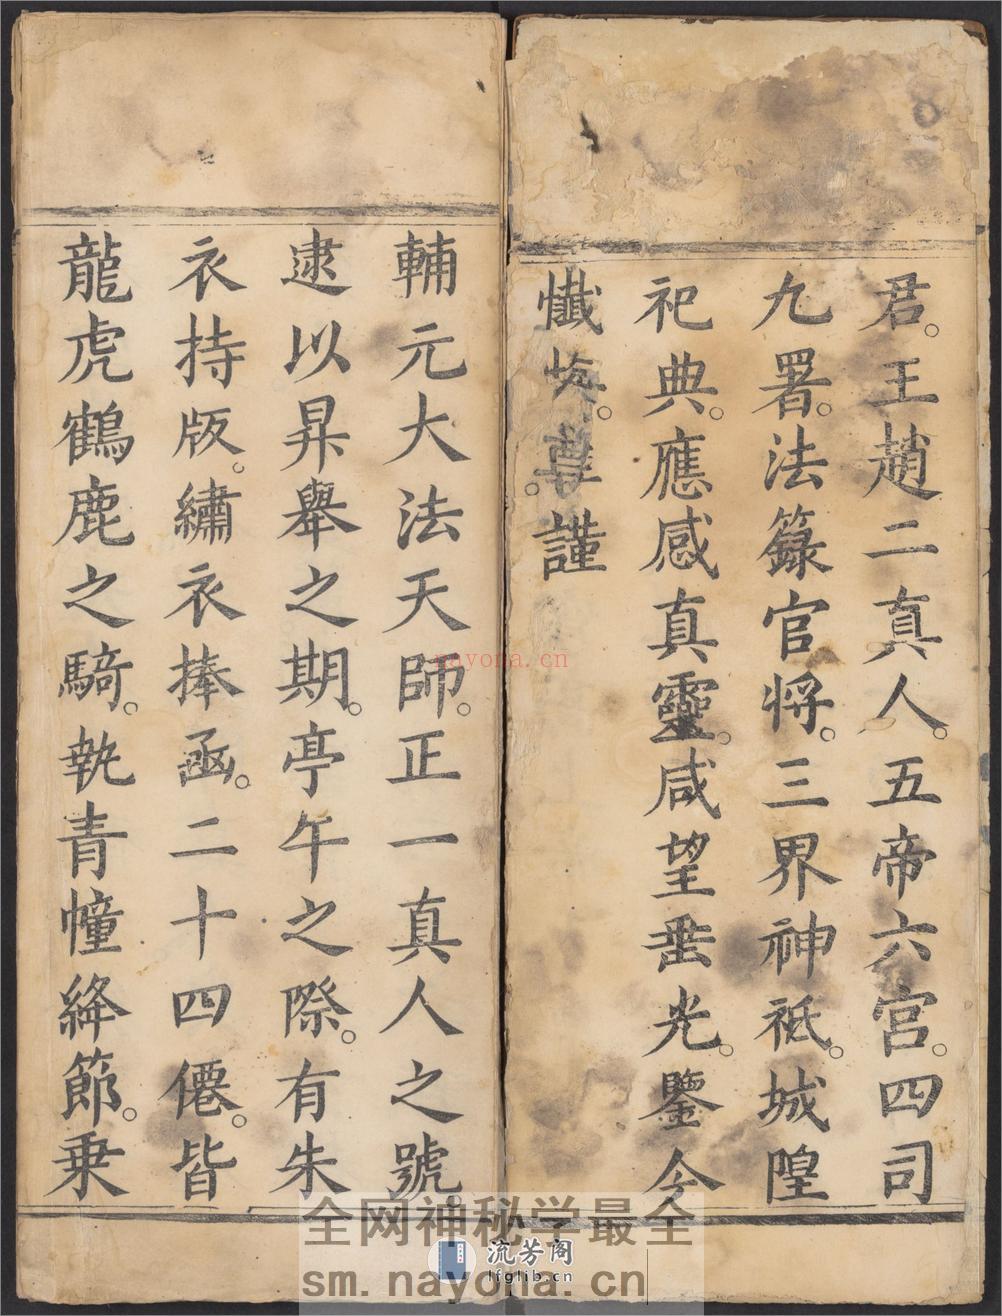 君。王趙二真人。五帝六宮。四司
九署。法籙官將。三界神祇。城隍
祀典。應感真靈。咸望垂光。鑒今
懺悔。尊。謹
輔元大法天師。正一真人之號。
逮以昇舉之期。亭午之際。有朱
衣持版。繡衣捧函。二十四僊。皆
龍虎鶴鹿之騎。執青幢絳節。乗
nayona.cn
全网神秘学最全
sm.nayona.cn
流芳阁
lfglib.cn